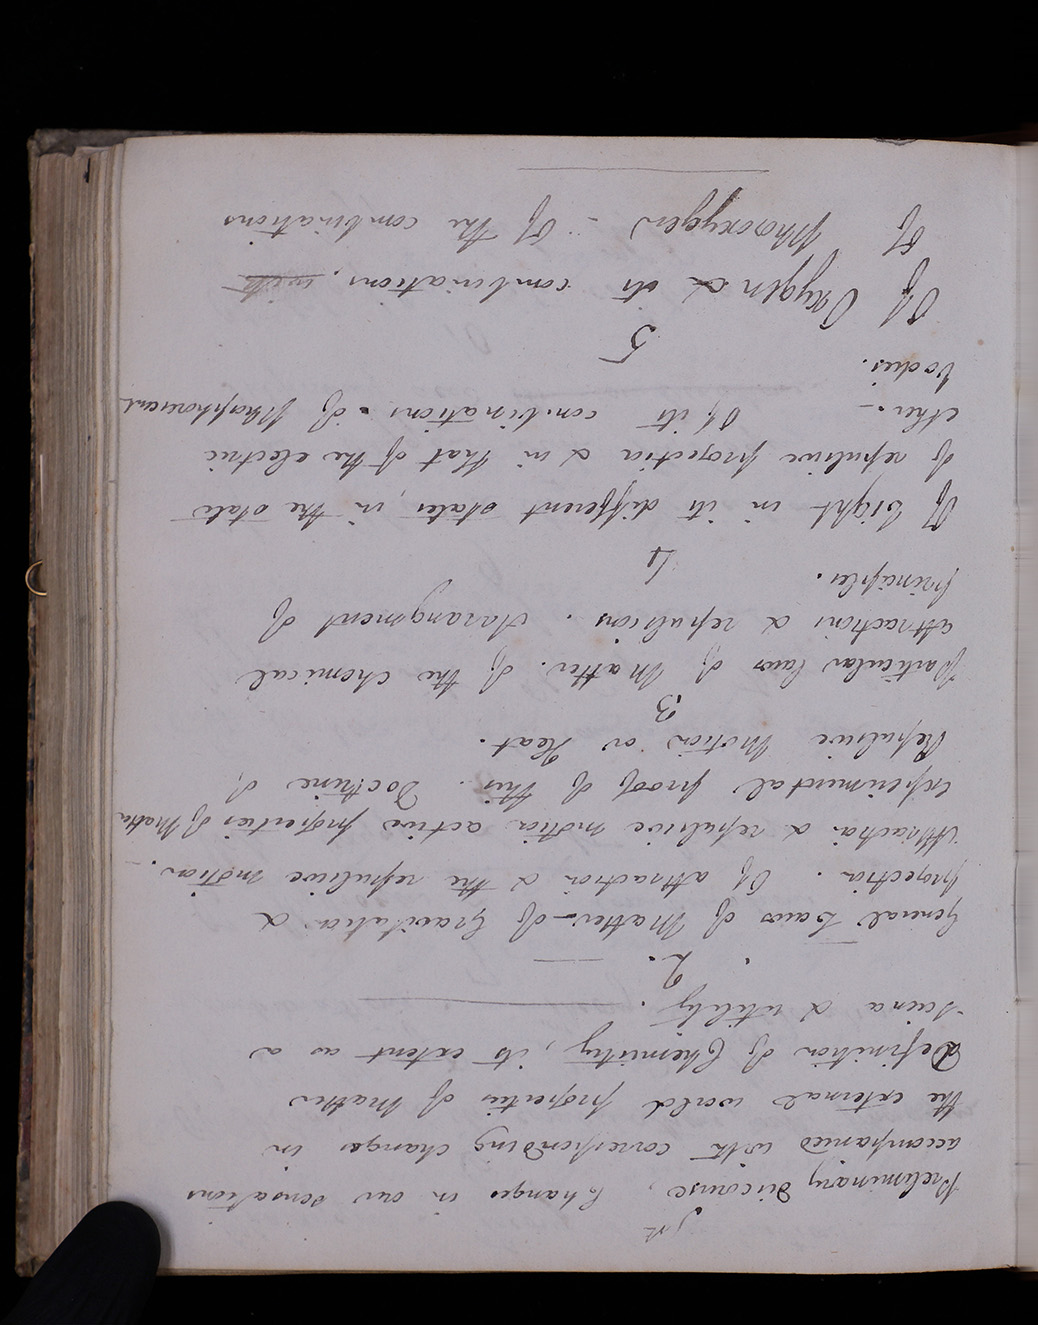 1st
Preliminary Discourse, Changes in our sensations
accompanied with corresponding changes in
the external world properties of matter
Definition of Chemistry, its extent as a
science & utility.
2.
General Laws of Matter - of Gravitation &
projection. Of attraction & the repulsive motion.
Attraction & repulsive motion active properties of Matter
experimental proof of this. Doctrine of
Repulsive Motion or Heat.
3
Particular Laws of Matter. Of the chemical
attractions & repulsions. Arrangment of
principles.
4
Of Light in its different states, in the state
of repulsive projection & in that of the electric
ether. - Of its combinations. Of Phosphorescent
bodies.
5
Of Oxygen & its combinations, with
Of Phosoxygen - Of the combinations